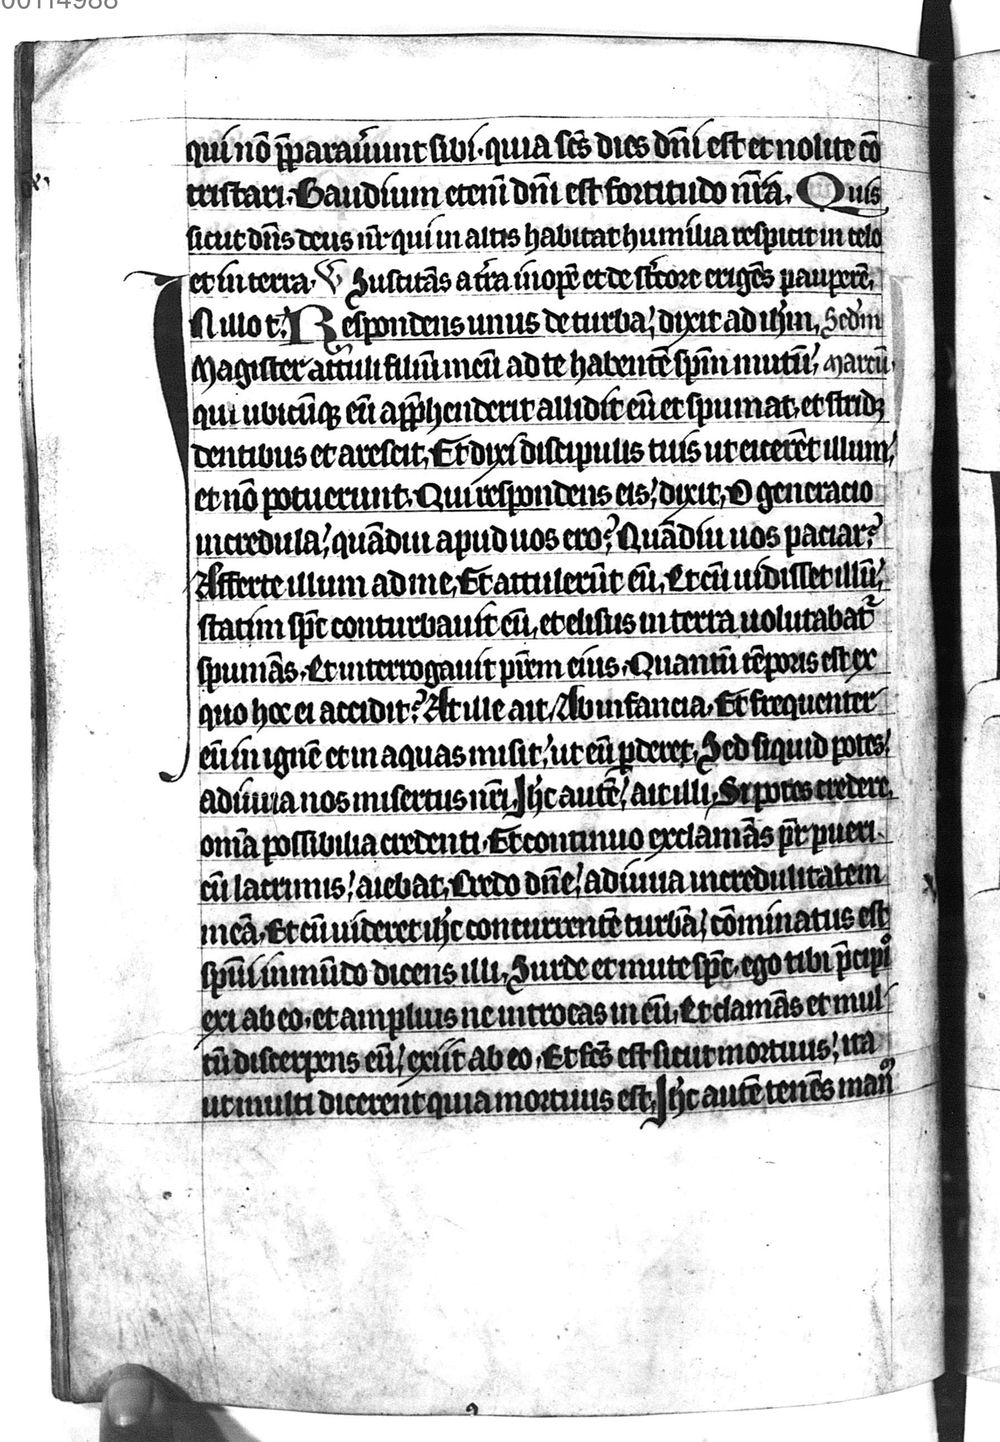 00114988
qui nō p̄parau̾unt sibi · quia sc̄s dies dn̄i est et nolite cō
tristari, Gaudium eteni dn̄i est fortitudo nr̄a. Quis
sicut dn̄s deus nr̄ qui in altis habitat humilia respicit in celo
et in terra. V Suscitās a tr̄a inopē et de st̾core erigēs pauperē,
IN illo t̾. Respondens unus de turba, dixit ad ih̄m, Sed̄m
Magister attuli filiū meū ad te habentē sp̄m mutū, Marcū
qui ubicūq; eū app̄henderit allidit eū et spumat, et strid;
dentibus et arescit, Et dixi discipulis tuis ut eicerēt illum,
et nō potuerunt, Qui respondens eis, dixit, O generacio
incredula, quādiu apud uos ero? Quādiu uos paciar?
Afferte illum ad me, Et attulerūt eū, Et cū uidisset illū,
statim sp̄c conturbauit eū, et elisus in terra uolutabat̾
spumās, Et interrogauit pr̄em eius, Quantū tēporis est ex
quo hoc ei accidit? At ille ait, Ab infancia, Et frequenter
eū in ignē et in aquas misit, ut eū ꝑderet, Sed siquid potes,
adiuua nos misertus nr̄i, Ih̄c autē, ait illi, Si potes credere,
om̄ia possibilia credenti, Et continuo exclamās pr̄ pueri
cū lacrimis, aiebat, Credo dn̄e, adiuua incredulitatem
meā, Et cū uideret ih̄c concurrentē turbā, cōminatus est
sp̄ui inmūdo dicens illi, Surde et mute sp̄c, ego tibi p̄cipi°
exi ab eo, et amplius ne introeas in eū, Et clamās et mul
tū discerpens eū, exiit ab eo, Et fc̄s est sicut mortuus, ita
ut multi dicerent quia mortuus est, Ih̄c autē tenēs manꝰ